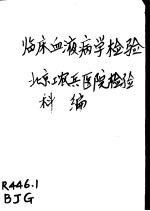 临床血液病学检验
北京工农兵医院检验
科 编
R446.1
BJG